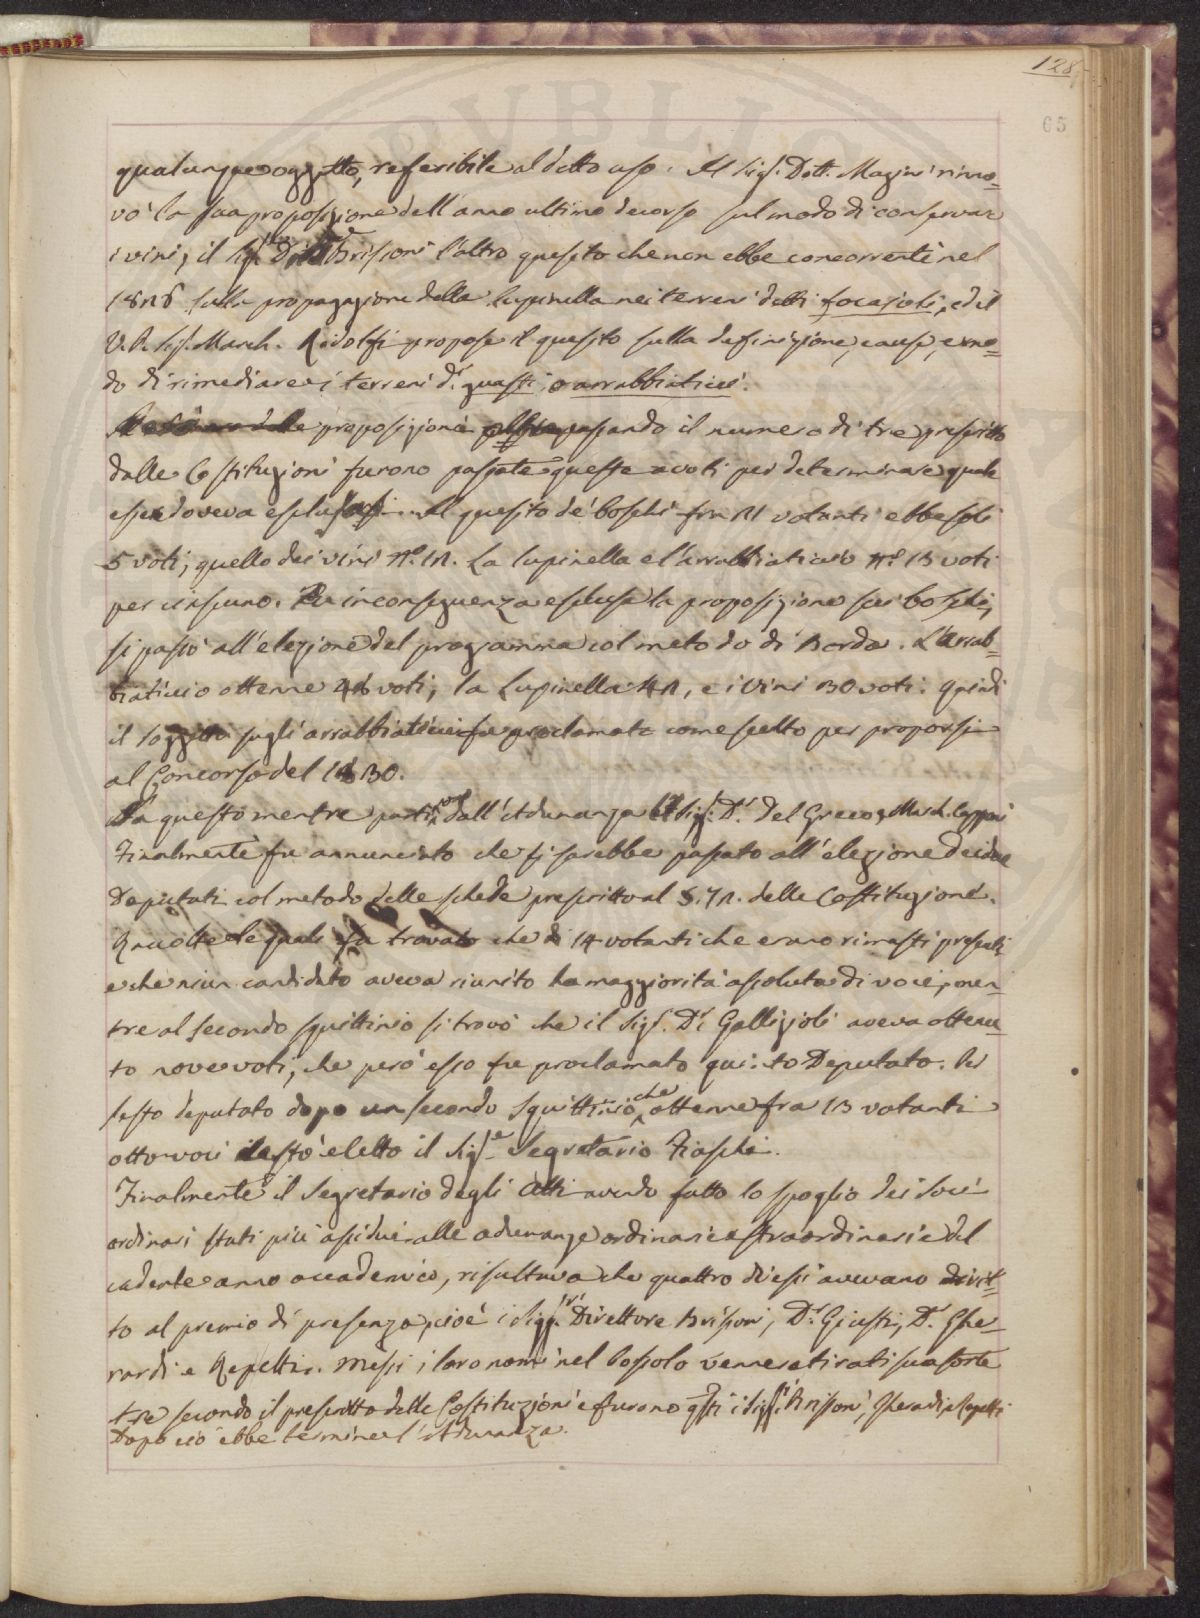 128
65
qualunque oggetto, referibile al detto uso. Il Sig.r Dott. Magini rinno=
vò la sua proposizione dell'anno ultimo decorso sul modo di conservar
i vini; il Sig.r Brisoni l'altro quesito che non ebbe concorrenti nel
sulla propagazione della lupinella nei terreni detti focajoli, ed il
V. P. Sig. March. Ridolfi propose il quesito sulla definizione, cause, e mo=
do di rimediare i terreni d.i guasti, o arrabbiaticci.
proposizioni passando il numero di tre prescritto
dalle Costituzioni furono passate queste a voti per determinare quale
esser doveva Il quesito de' boschi fra 21 votanti ebbe soli
5 voti; quello dei vini N.o 12. La lupinella e l'arrabbiaticcio N.o 13 voti
per ciascuno. In conseguenza esclusa la proposizione sui boschi,
si passò all'elezione del programma col metodo di Borda. L'arrab=
biaticcio ottenne 46 voti, la Lupinella 42, e i vini 30 voti. Quindi
il soggetto sugli arrabbiaticci fu proclamato come scelto per proporsi
al Concorso del 1830.
In questo mentre partirono dall'Adunanza i Sigg. D.r Del Greco, e March. Capponi
Finalmente fu annunciato che si sarebbe passato all'elezione dei due
Deputati col metodo delle schede prescritto al §. 72. delle Costituzioni.
Raccolte le quali fu trovato che di 14 votanti che erano rimasti presenti
e che niun candidato aveva riunito la maggiorità assoluta di voci, men=
tre al secondo squittinio si trovò che il Sig.r D.r Gallizioli aveva ottenu=
to nove voti, che però esso fu proclamato quinto Deputato. Per
sesto deputato dopo un secondo squittinio, che ottenne fra 13 votanti
otto voci restò eletto il Sig.re Segretario Fiaschi.
Finalmente il Segretario degli Atti avendo fatto lo spoglio dei Socj
ordinari stati più assidui alle adunanze ordinarie e straordinarie del
cadente anno accademico, risultava che quattro di essi avevano dirit=
to al premio di presenza, cioè i Sigg.ri Direttore Brisoni, D.r Giusti, D.r Ghe=
rardi e Repetti. Messi i loro nomi nel bossolo vennero tirati su a sorte
tre secondo il prescritto delle Costituzioni e furono q.sti i Sigg.ri Brisoni, Gherardi, e Repetti
Dopo ciò ebbe termine l'Adunanza.